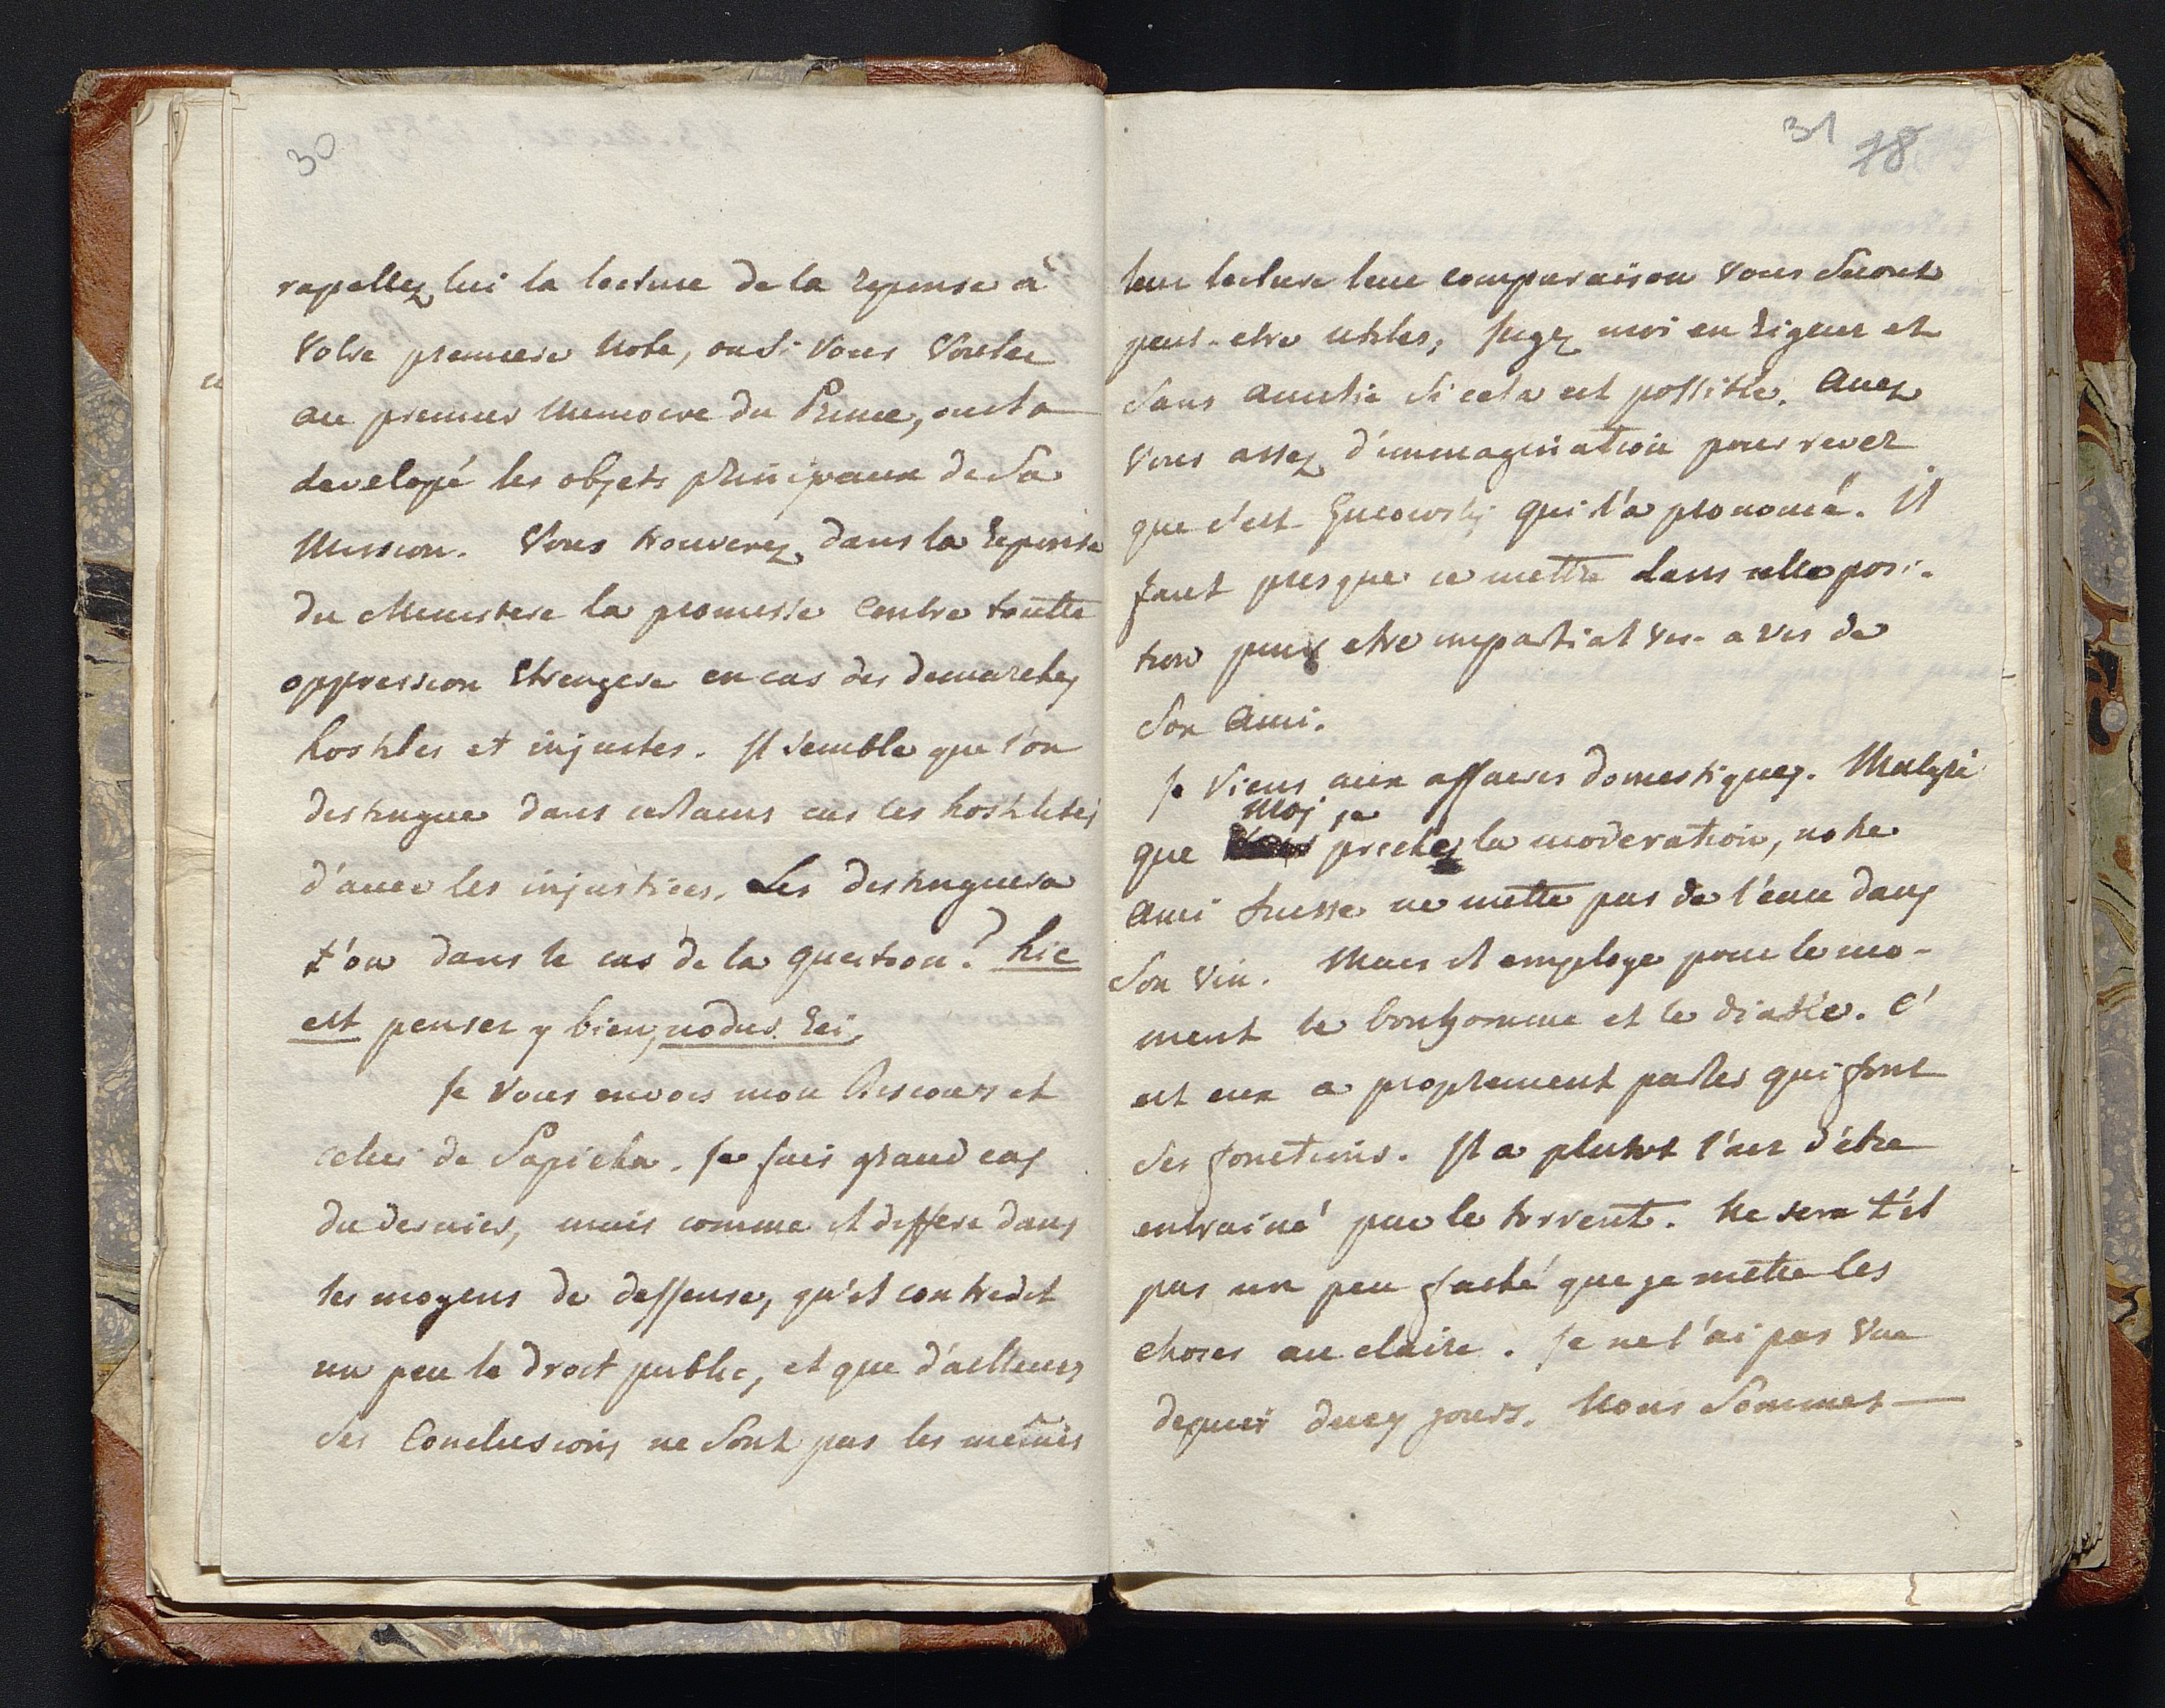 30
rapellez lui la lecture de la reponse à
Votre premiere Note, ou si Vous Voulez
au premier Memoire du Prince, ou l'a
developé les objets principaux de Sa
Mission. Vous trouverez dans la Reponse
du Ministere la promesse contre toutte
oppression Etrangere en cas des demarches
hostiles et injustes. Il semble que l'on
distingue dans certains cas les hostilités
d'avec les injustices. Les distinguera
t'on dans le cas de la question? hic
est penser y bien, nodus Rei,
Je Vous envois mon Discours et
celui de Sapieha. Je fais grand cas
du dernier, mais comme il differe dans
les moyens de deffense, qu'il contredit
un peu le droit public, et que d'ailleurs
Ses Conclusions ne Sont pas les mêmes
31
18
leur lecture leur comparaison Vous Seront
peut-etre utiles, Jugez moi en Rigeur et
Sans Amitie Si cela est possible. Avez
Vous assez d'immagination pour rever
que c'est qui l'a prononcé. Il
faut presque ce mettre dans cette posi-
tion pour etre impartial vis a vis de
Son Ami.
Je Viens aux affaires domestiques. Malgré
Moi je
que preche la moderation, notre
Ami Suisse ne mette pas de l'eau dans
Son Vin. Mais il employe pour le mo-
ment le bonhomme et le diable. C'
est eux a proprement parler qui font
Ses fonctions. Il a plutot l'air d'être
entrainé par le torrent. Ne sera t'il
pas un peu faché que je mette les
choses au claire. Je ne l'ai pas Vue
depuis deux jours. Nous Sommes —